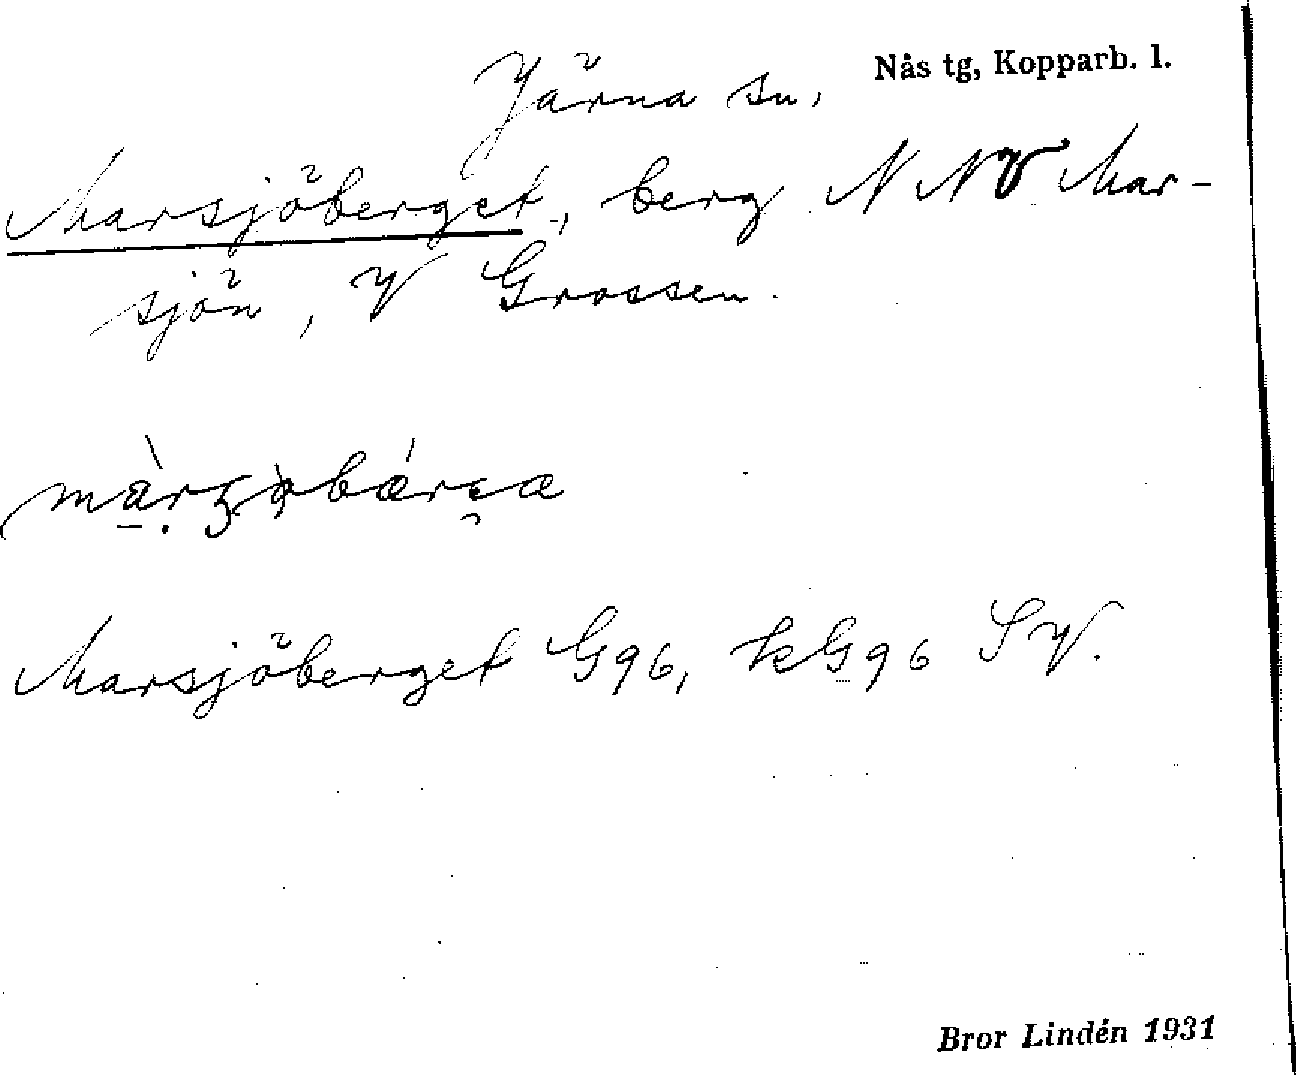 Järna sn.
Nås tg, Kopparb. l.
Marsjöberget, berg NNV Mar-
sjön, V Grossen.
Marsjöberget G96, kG96 SV.
Bror Lindén 1931